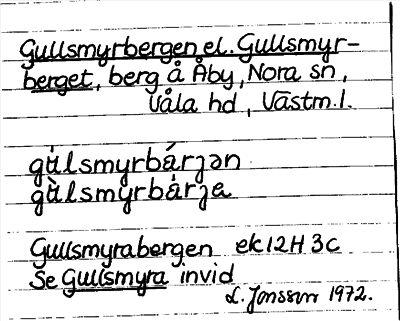 Gullsmyrbergen el. Gullsmyr-
berget, berg å Åby, Nora sn,
Våla hd, Västm.l.
gὺlsmyrbárȷən
gὺlsmyrbárȷa
Gullsmyrabergen ek 12H 3c
Se Gullsmyra invid
L. Jonsson 1972.